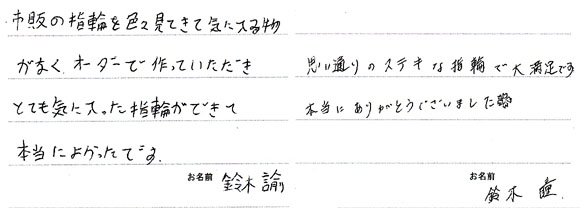 市販の指輪を色々見てきて気に入る物
がなく、オーダーで作っていただき
とても気に入った指輪ができて
本当によかったです。
お名前 鈴木 諭
思い通りのステキな指輪で大満足です
本当にありがとうございました
お名前
鈴木 瞳